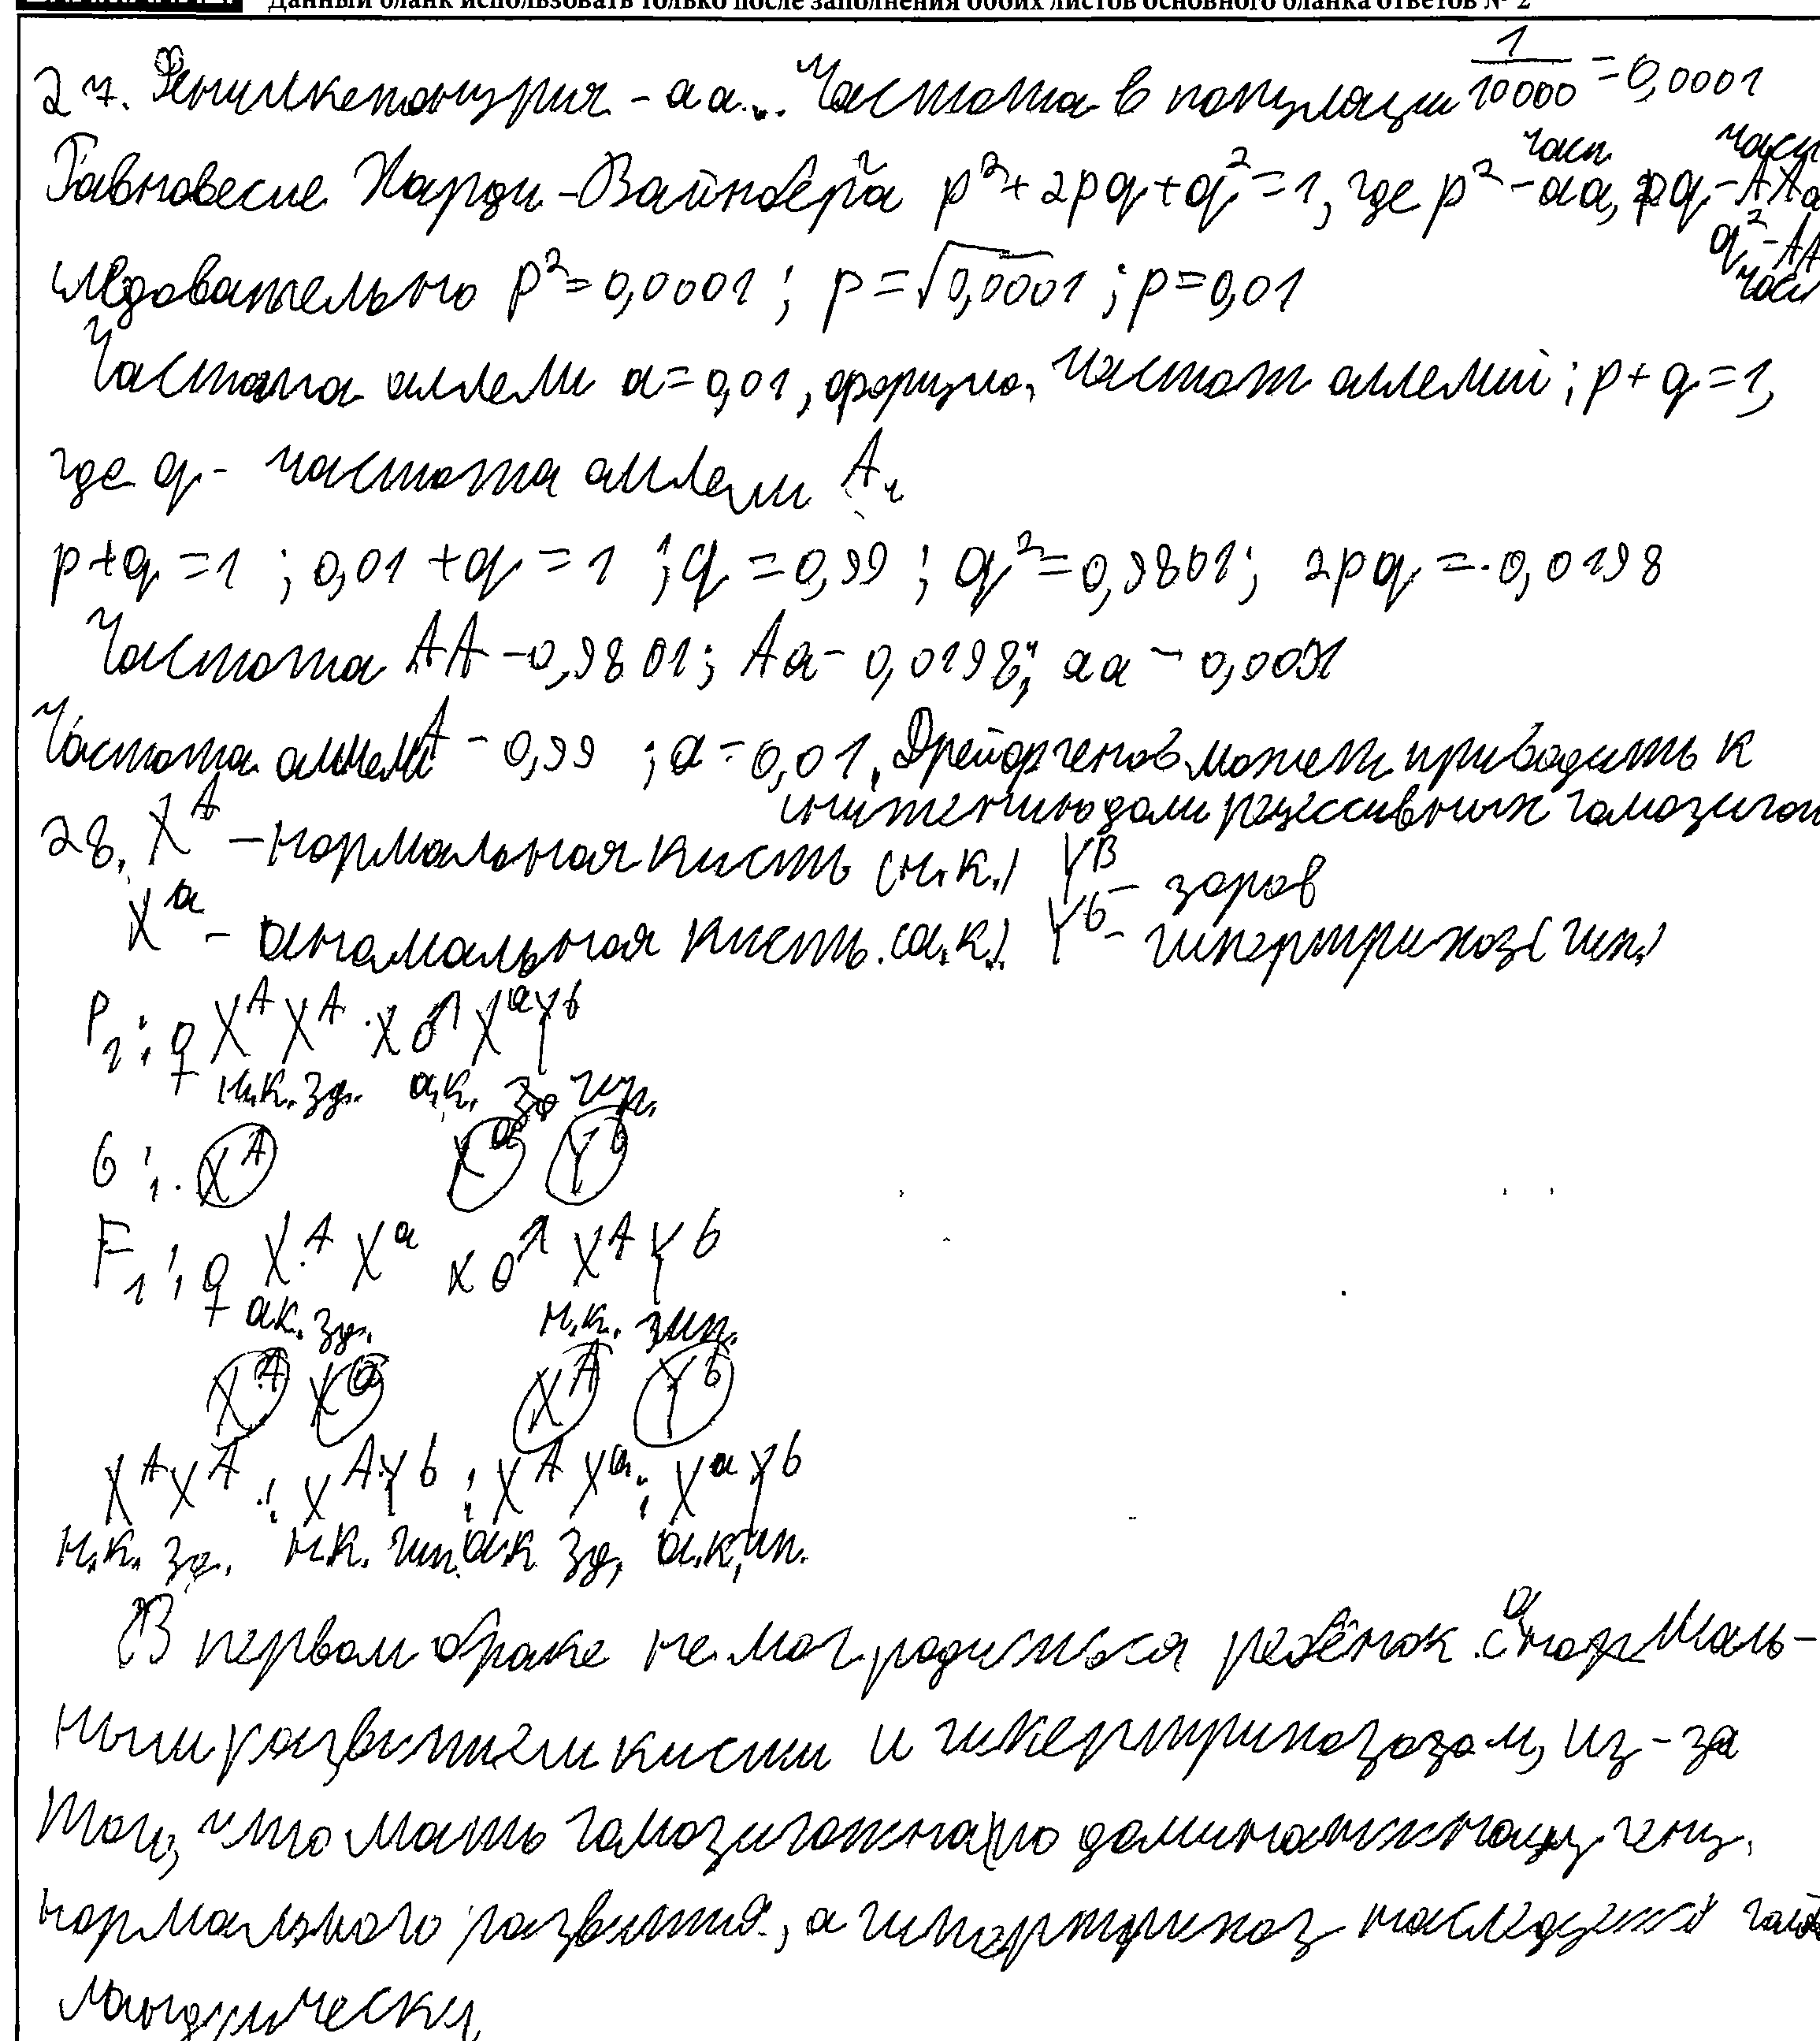 Данный бланк использовать только после заполнения обоих листов основного бланка ответов № 2
27. Фенилкетонурия - аа. Частота в популяции 1/10000 = 0,0001
Равновесие Харди-Вайнберга p²+2pq+q²=1, где p² - аа, 2pq - Аа
q² - АА
следовательно p²=0,0001; p=√0,0001; p=0,01
Частота аллели а=0,01, формула частот аллелий; p+q=1,
где q - частота аллели А.
p+q=1; 0,01+q=1; q=0,99; q²=0,9801; 2pq=0,0198
Частота АА - 0,9801; Аа - 0,0198; аа - 0,0001
Частота аллели А - 0,99; а - 0,01. Дрейф генов может приводить к
снижению доли рецессивных гомозигот
28. Xᴬ - нормальная кисть (н.к.) Yᴮ - здоров
Xᵃ - аномальная кисть (а.к.) Yᵇ - гипертрихоз (гип.)
P₁: ♀ XᴬXᴬ x ♂ XᵃYᵇ
н.к. зд. а.к. гип.
G: Xᴬ Xᵃ Yᵇ
F₁: ♀ XᴬXᵃ x ♂ XᴬYᵇ
а.к. зд. н.к. гип.
Xᴬ Xᵃ Xᴬ Yᵇ
XᴬXᴬ; XᴬYᵇ; XᴬXᵃ; XᵃYᵇ
н.к. зд. н.к. гип. а.к. зд. а.к. гип.
В первом браке не мог родиться ребёнок с анормаль-
ным развитием кисти и гипертрихозозом, из-за
того, что мать гомозиготна по доминантному гену
нормального развития, а гипертрихоз наследуется голан-
мандрически